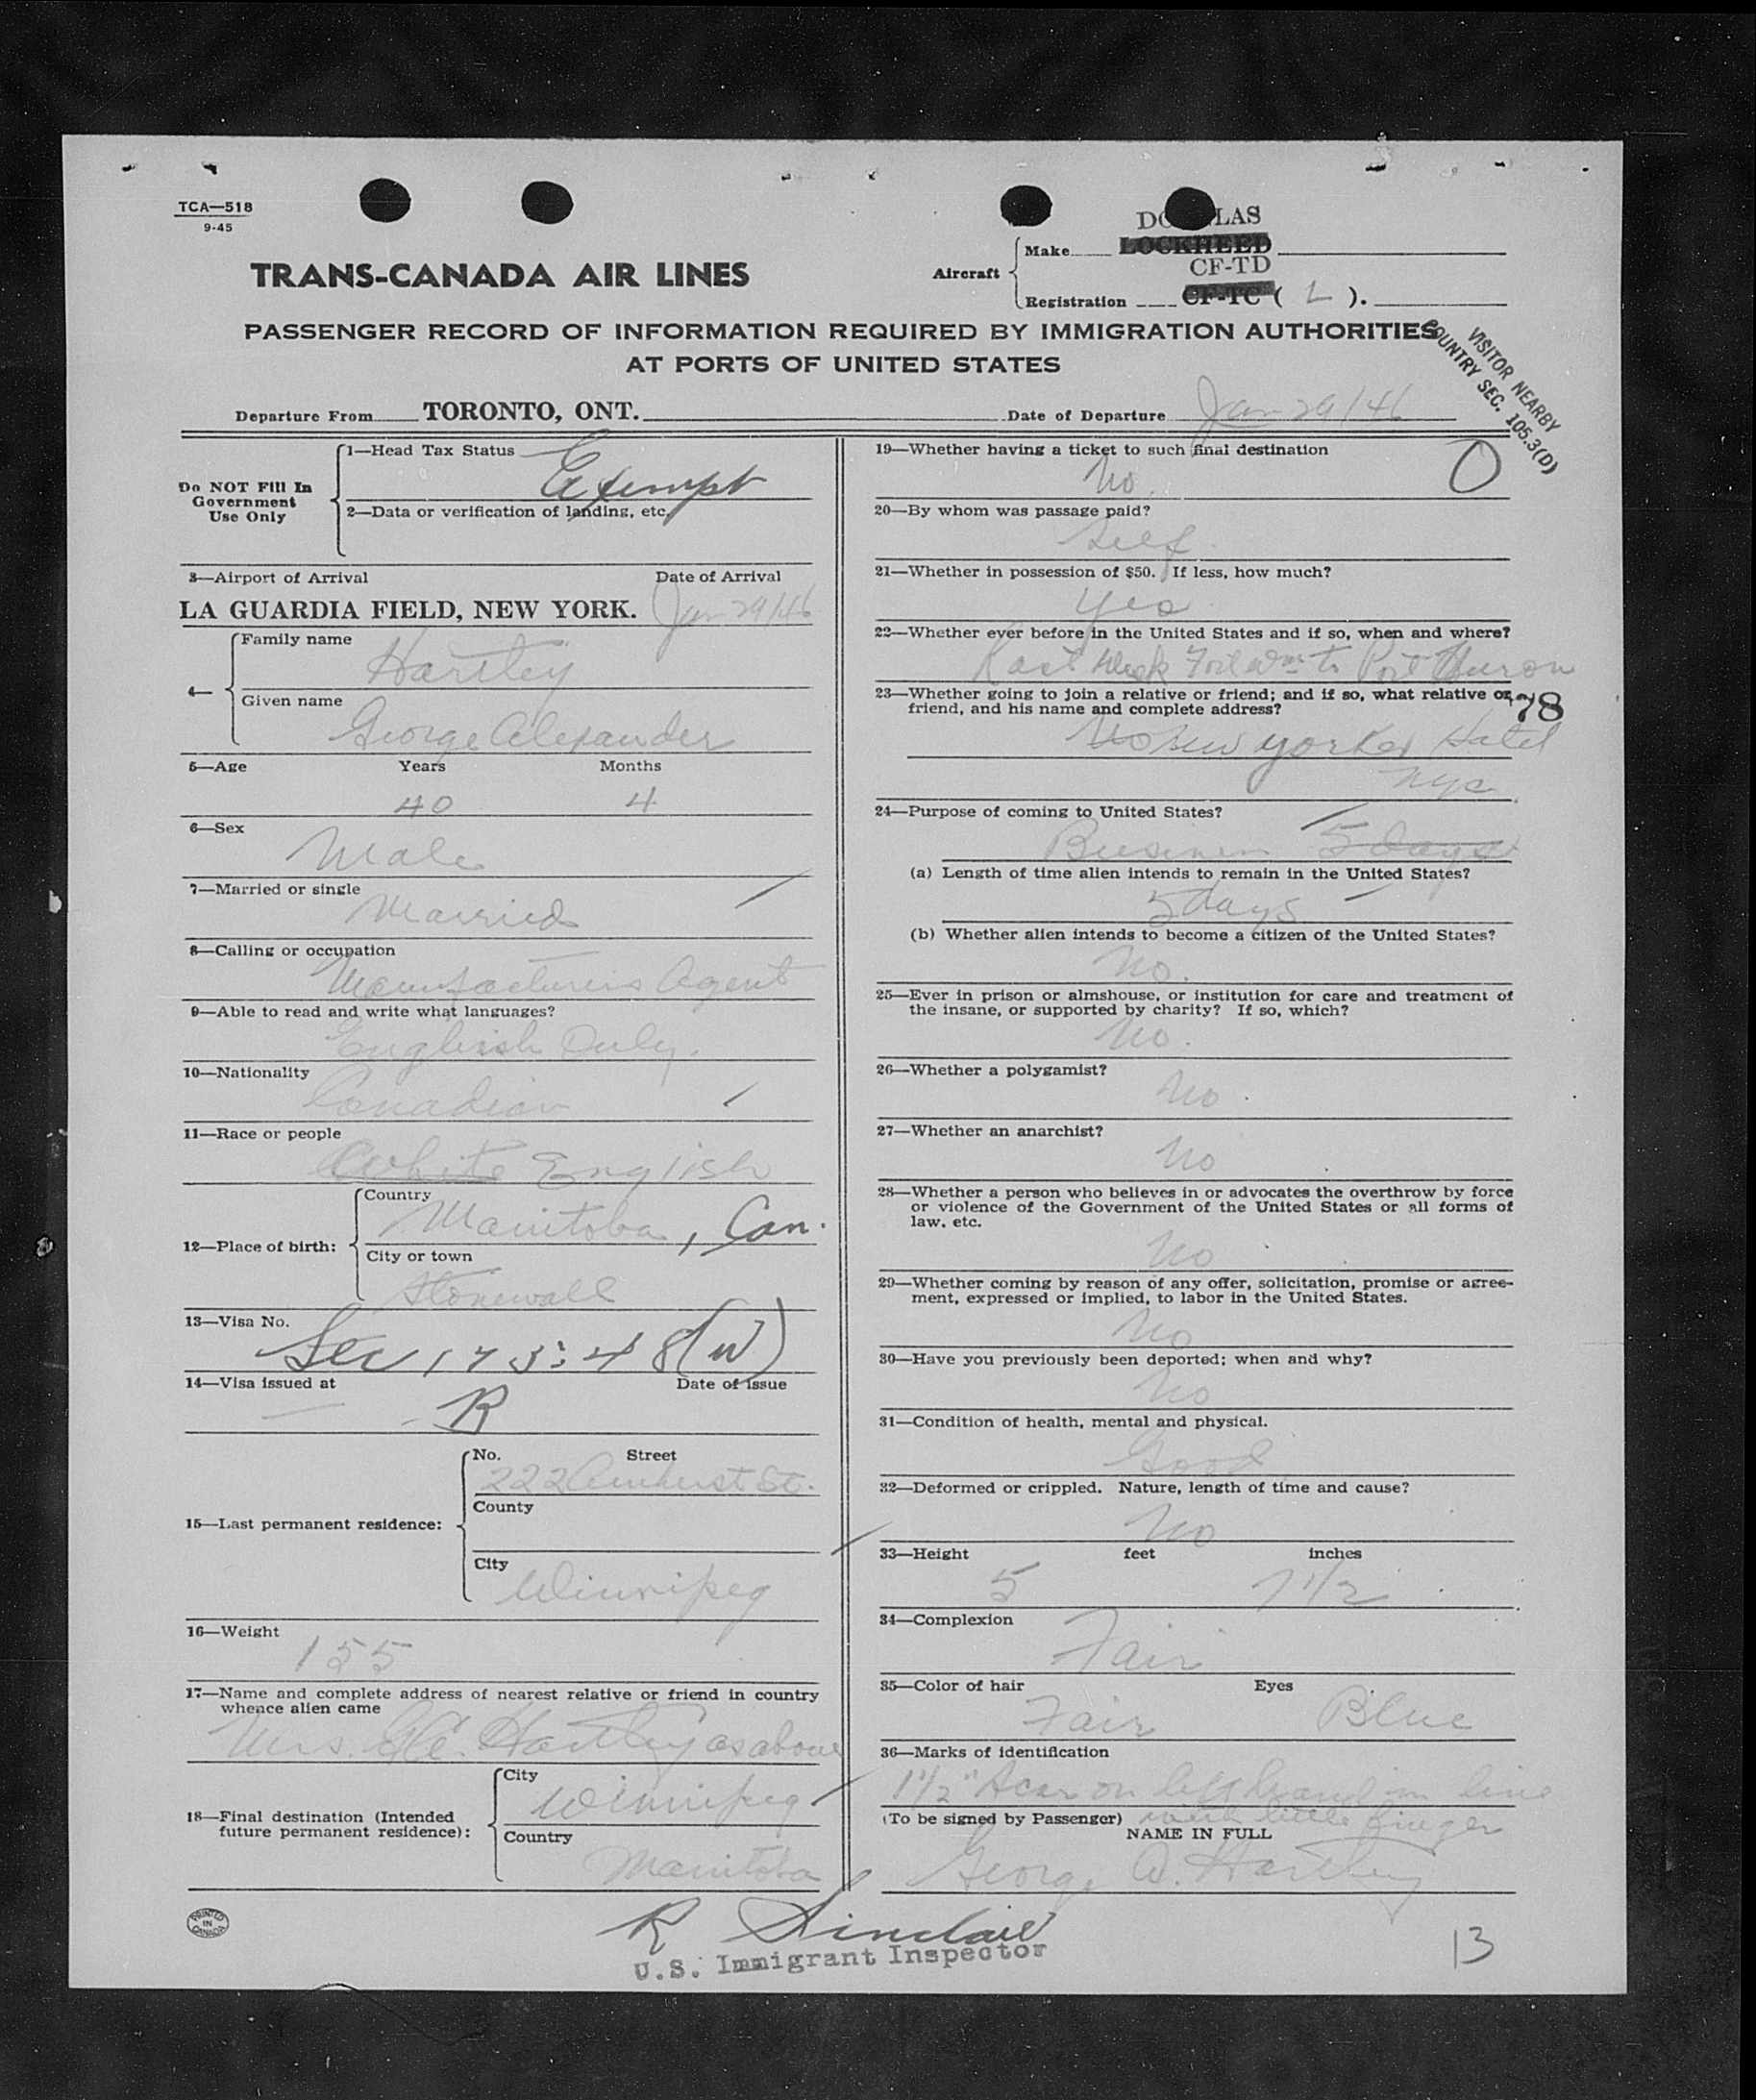 TCA—518
9-45
TRANS-CANADA AIR LINES
Aircraft
Make
DO LAS
LOCKHEED
CF-TD
Registration CF-TC ( L ).
PASSENGER RECORD OF INFORMATION REQUIRED BY IMMIGRATION AUTHORITIES
AT PORTS OF UNITED STATES
VISITOR NEARBY
COUNTRY SEC. 105.3(D)
Departure From TORONTO, ONT. Date of Departure Jan 29/46
Do NOT Fill In
Government
Use Only
1—Head Tax Status
Exempt
2—Data or verification of landing, etc.
3—Airport of Arrival Date of Arrival
LA GUARDIA FIELD, NEW YORK. Jan 29/46
4—
Family name
Hartley
Given name
George Alexander
5—Age Years Months
40 4
6—Sex
Male
7—Married or single
Married
8—Calling or occupation
Manufacturers Agent
9—Able to read and write what languages?
English Only.
10—Nationality
Canadian
11—Race or people
White English
12—Place of birth:
Country
Manitoba, Can.
City or town
Stonewall
13—Visa No.
Sec 175:48(W)
14—Visa issued at Date of issue
R
15—Last permanent residence:
No. Street
222 Amherst St.
County
City
Winnipeg
16—Weight
155
17—Name and complete address of nearest relative or friend in country
whence alien came
Mrs. G.A. Hartley as above
18—Final destination (Intended
future permanent residence):
City
Winnipeg
Country
Manitoba
19—Whether having a ticket to such final destination
No. O
20—By whom was passage paid?
Self
21—Whether in possession of $50. If less, how much?
Yes
22—Whether ever before in the United States and if so, when and where?
Last Week to Port Huron
23—Whether going to join a relative or friend; and if so, what relative or
friend, and his name and complete address?
78
No New Yorker Hotel
NYC
24—Purpose of coming to United States?
Business 5 days
(a) Length of time alien intends to remain in the United States?
5 days
(b) Whether alien intends to become a citizen of the United States?
No.
25—Ever in prison or almshouse, or institution for care and treatment of
the insane, or supported by charity? If so, which?
No.
26—Whether a polygamist?
No.
27—Whether an anarchist?
No
28—Whether a person who believes in or advocates the overthrow by force
or violence of the Government of the United States or all forms of
law, etc.
No
29—Whether coming by reason of any offer, solicitation, promise or agree-
ment, expressed or implied, to labor in the United States.
No
30—Have you previously been deported; when and why?
No
31—Condition of health, mental and physical.
Good
32—Deformed or crippled. Nature, length of time and cause?
No
33—Height feet inches
5 7 1/2
34—Complexion
Fair
35—Color of hair Eyes
Fair Blue
36—Marks of identification
1 1/2" Scar on left hand in line
with little finger
(To be signed by Passenger)
NAME IN FULL
George A. Hartley
PRINTED IN CANADA
R Sinclair
U.S. Immigrant Inspector
13